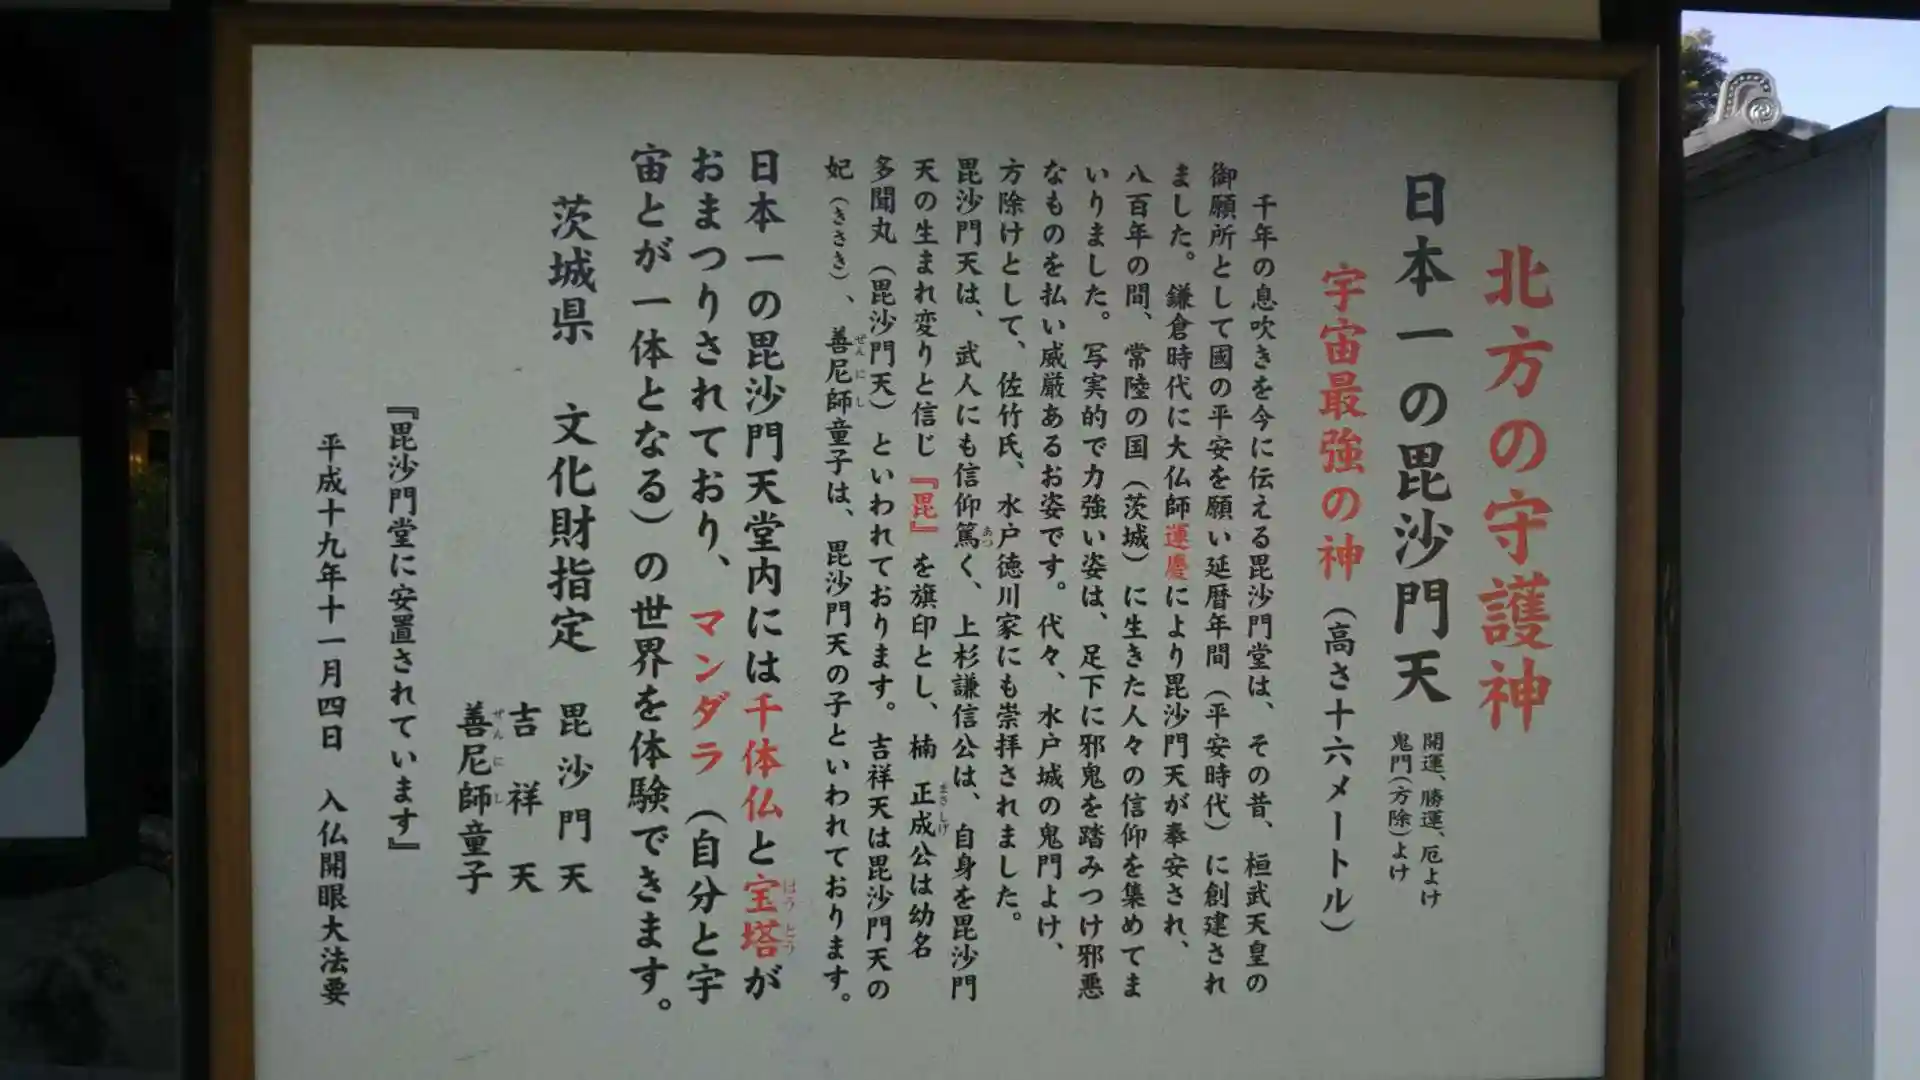 北方の守護神
日本一の毘沙門天
開運、勝運、厄よけ
鬼門(方除)よけ
宇宙最強の神（高さ十六メートル）
千年の息吹きを今に伝える毘沙門堂は、その昔、桓武天皇の
御願所として國の平安を願い延暦年間（平安時代）に創建され
ました。鎌倉時代に大仏師運慶により毘沙門天が奉安され、
八百年の間、常陸の国（茨城）に生きた人々の信仰を集めてま
いりました。写実的で力強い姿は、足下に邪鬼を踏みつけ邪悪
なものを払い威厳あるお姿です。代々、水戸城の鬼門よけ、
方除けとして、佐竹氏、水戸徳川家にも崇拝されました。
毘沙門天は、武人にも信仰篤く、上杉謙信公は、自身を毘沙門
あつ
天の生まれ変りと信じ『毘』を旗印とし、楠 正成公は幼名
まさしげ
多聞丸（毘沙門天）といわれております。吉祥天は毘沙門天の
妃（きさき）、善尼師童子は、毘沙門天の子といわれております。
ぜんにし
日本一の毘沙門天堂内には千体仏と宝塔が
ほうとう
おまつりされており、マンダラ（自分と宇
宙とが一体となる）の世界を体験できます。
茨城県 文化財指定
毘沙門天
吉祥天
善尼師童子
ぜんにし
『毘沙門堂に安置されています』
平成十九年十一月四日 入仏開眼大法要